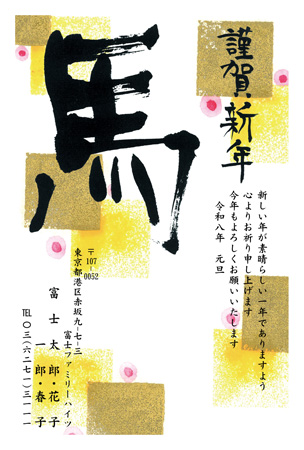 謹賀新年
馬
新しい年が素晴らしい一年でありますよう
心よりお祈り申し上げます
今年もよろしくお願いいたします
令和八年 元旦
〒107-0052
東京都港区赤坂九-七-三
富士ファミリーハイツ
富士太郎・花子
一郎・春子
℡〇三(六二七一)三一一一